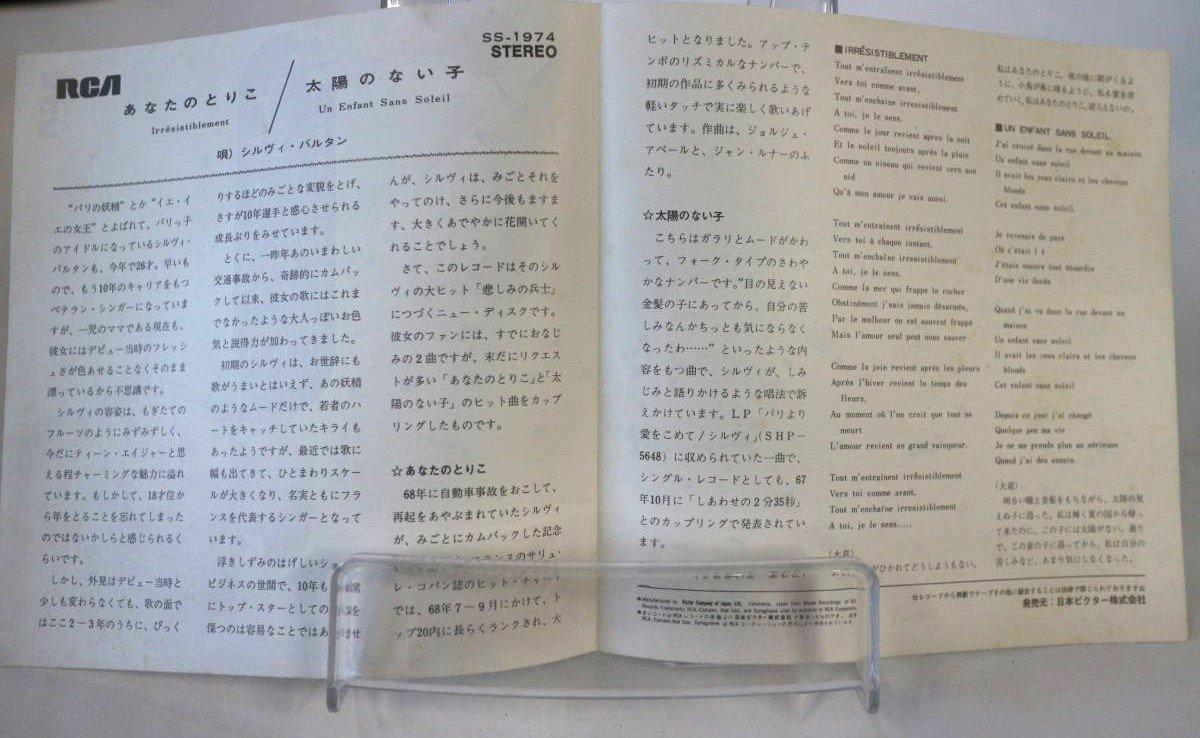 SS-1974
STEREO
RCA
あなたのとりこ
Irrésistiblement
太陽のない子
Un Enfant Sans Soleil
唄）シルヴィ・バルタン
“パリの妖精”とか“イエ・イ
エの女王”とよばれて、パリっ子
のアイドルになっているシルヴィ・
バルタンも、今年で26才。早いも
ので、もう10年のキャリアをもつ
ベテラン・シンガーになっていま
すが、一児のママである現在も、
彼女にはデビュー当時のフレッシ
ュさが色あせることなくそのまま
漂っているから不思議です。
シルヴィの容姿は、もぎたての
フルーツのようにみずみずしく、
今だにティーン・エイジャーと思
える程チャーミングな魅力に溢れ
ています。もしかして、18才位か
ら年をとることを忘れてしまった
のではないかしらと感じられるく
らいです。
しかし、外見はデビュー当時と
少しも変わらなくても、歌の面で
はここ2〜3年のうちに、びっく
りするほどのみごとな変貌をとげ、
さすが10年選手と感心させられる
成長ぶりをみせています。
とくに、一昨年あのいまわしい
交通事故から、奇跡的にカムバッ
クして以来、彼女の歌にはこれま
でなかったような大人っぽいお色
気と説得力が加わってきました。
初期のシルヴィは、お世辞にも
歌がうまいとはいえず、あの妖精
のようなムードだけで、若者のハ
ートをキャッチしていたキライも
あったようですが、最近では歌に
幅も出てきて、ひとまわりスケー
ルが大きくなり、名実ともにフラ
ンスを代表するシンガーとなって
います。
浮きしずみのはげしいショ
ビジネスの世間で、10年も
にトップ・スターとしての
保つのは容易なことではあ ませ
んが、シルヴィは、みごとそれを
やってのけ、さらに今後もますま
す、大きくあでやかに花開いてく
れることでしょう。
さて、このレコードはそのシル
ヴィの大ヒット「悲しみの兵士」
につづくニュー・ディスクです。
彼女のファンには、すでにおなじ
みの2曲ですが、未だにリクエス
トが多い「あなたのとりこ」と「太
陽のない子」のヒット曲をカップ
リングしたものです。
☆あなたのとりこ
68年に自動車事故をおこして、
再起をあやぶまれていたシルヴィ
が、みごとにカムバックした記念
ランスのサリュ・
レ・コパン誌のヒット・チャート
では、68年7〜9月にかけて、ト
ップ20内に長らくランクされ、大
ヒットとなりました。アップ・テ
ンポのリズミカルなナンバーで、
初期の作品に多くみられるような
軽いタッチで実に楽しく歌いあげ
ています。作曲は、ジョルジュ・
アベールと、ジャン・ルナーのふ
たり。
☆太陽のない子
こちらはガラリとムードがかわ
って、フォーク・タイプのさわや
かなナンバーです。“目の見えない
金髪の子にあってから、自分の苦
しみなんかちっとも気にならなく
なったわ……”といったような内
容をもつ曲で、シルヴィが、しみ
じみと語りかけるような唱法で訴
えかけています。LP「パリより
愛をこめて/シルヴィ」(SHP-
5648)に収められていた一曲で、
シングル・レコードとしても、67
年10月に「しあわせの2分35秒」
とのカップリングで発表されてい
ます。
■IRRÉSISTIBLEMENT
Tout m'entraînent irrésistiblement
Vers toi comme avant,
Tout m'enchaine irresistiblement
A toi, je le sens.
Comme le jour revient apres la nuit
Et le soleil toujours après la pluie
Comme un oiseau qui revient vers son
nid
Qu'à mon amour je vais aussi.
Tout m'entraînent irrésistiblement
Vers toi à chaque instant,
Tout m'enchaîne irrésistiblement
A toi, je le sens.
Comme la mer qui frappe le rocher
Obstinément j'suis jamais désarmée,
Par le malheur on est souvent frappé
Mais l'amour seul peut nous sauver
Comme la joie revient après les pleurs
Après l'hiver revient le temps des
fleurs,
Au moment où l'on croit que tout se
meurt
L'amour revient en grand vainqueur.
Tout m'entraînent irrésistiblement
Vers toi comme avant,
Tout m'enchaîne irresistiblement
A toi, je le sens.....
（大意）
がひかれてどうしようもない。
私はあなたのとりこ。夜の後に朝がくるよ
うに、小鳥が巣に帰るように、私も愛を求
めていく。私はあなたのとりこ。逆らえないの。
■UN ENFANT SANS SOLEIL
J'ai croisé dans la rue devant sa maison
Un enfant sans soleil
Il avait les yeux clairs et les cheveux
blonds
Cet enfant sans soleil.
Je revenais de pays
Où c'était l t
J'étais encore tout étourdie
D'une vie dorée
Quand j'ai vu dans la rue devant sa
maison
Un enfant sans soleil
Il avait les yeux clairs et les cheveux
blonds
Cet enfant sans soleil
Depuis ce jour j'ai changé
Quelque peu ma vie
Je ne me prends plus au sérieuse
Quand j'ai des ennuis.
（大意）
明るい瞳と金髪をもちながら、太陽の見
えぬ子に遇った。私は輝く夏の国から帰っ
て来たのに、この子には太陽がない。通り
で、この盲の子に遇ってから、私は自分の
苦しみなど、あまり気にしなくなった。
☆レコードから無断でテープその他に録音することは法律で禁じられております
発売元：日本ビクター株式会社
Manufactured by Victor Company of Japan, Ltd.,